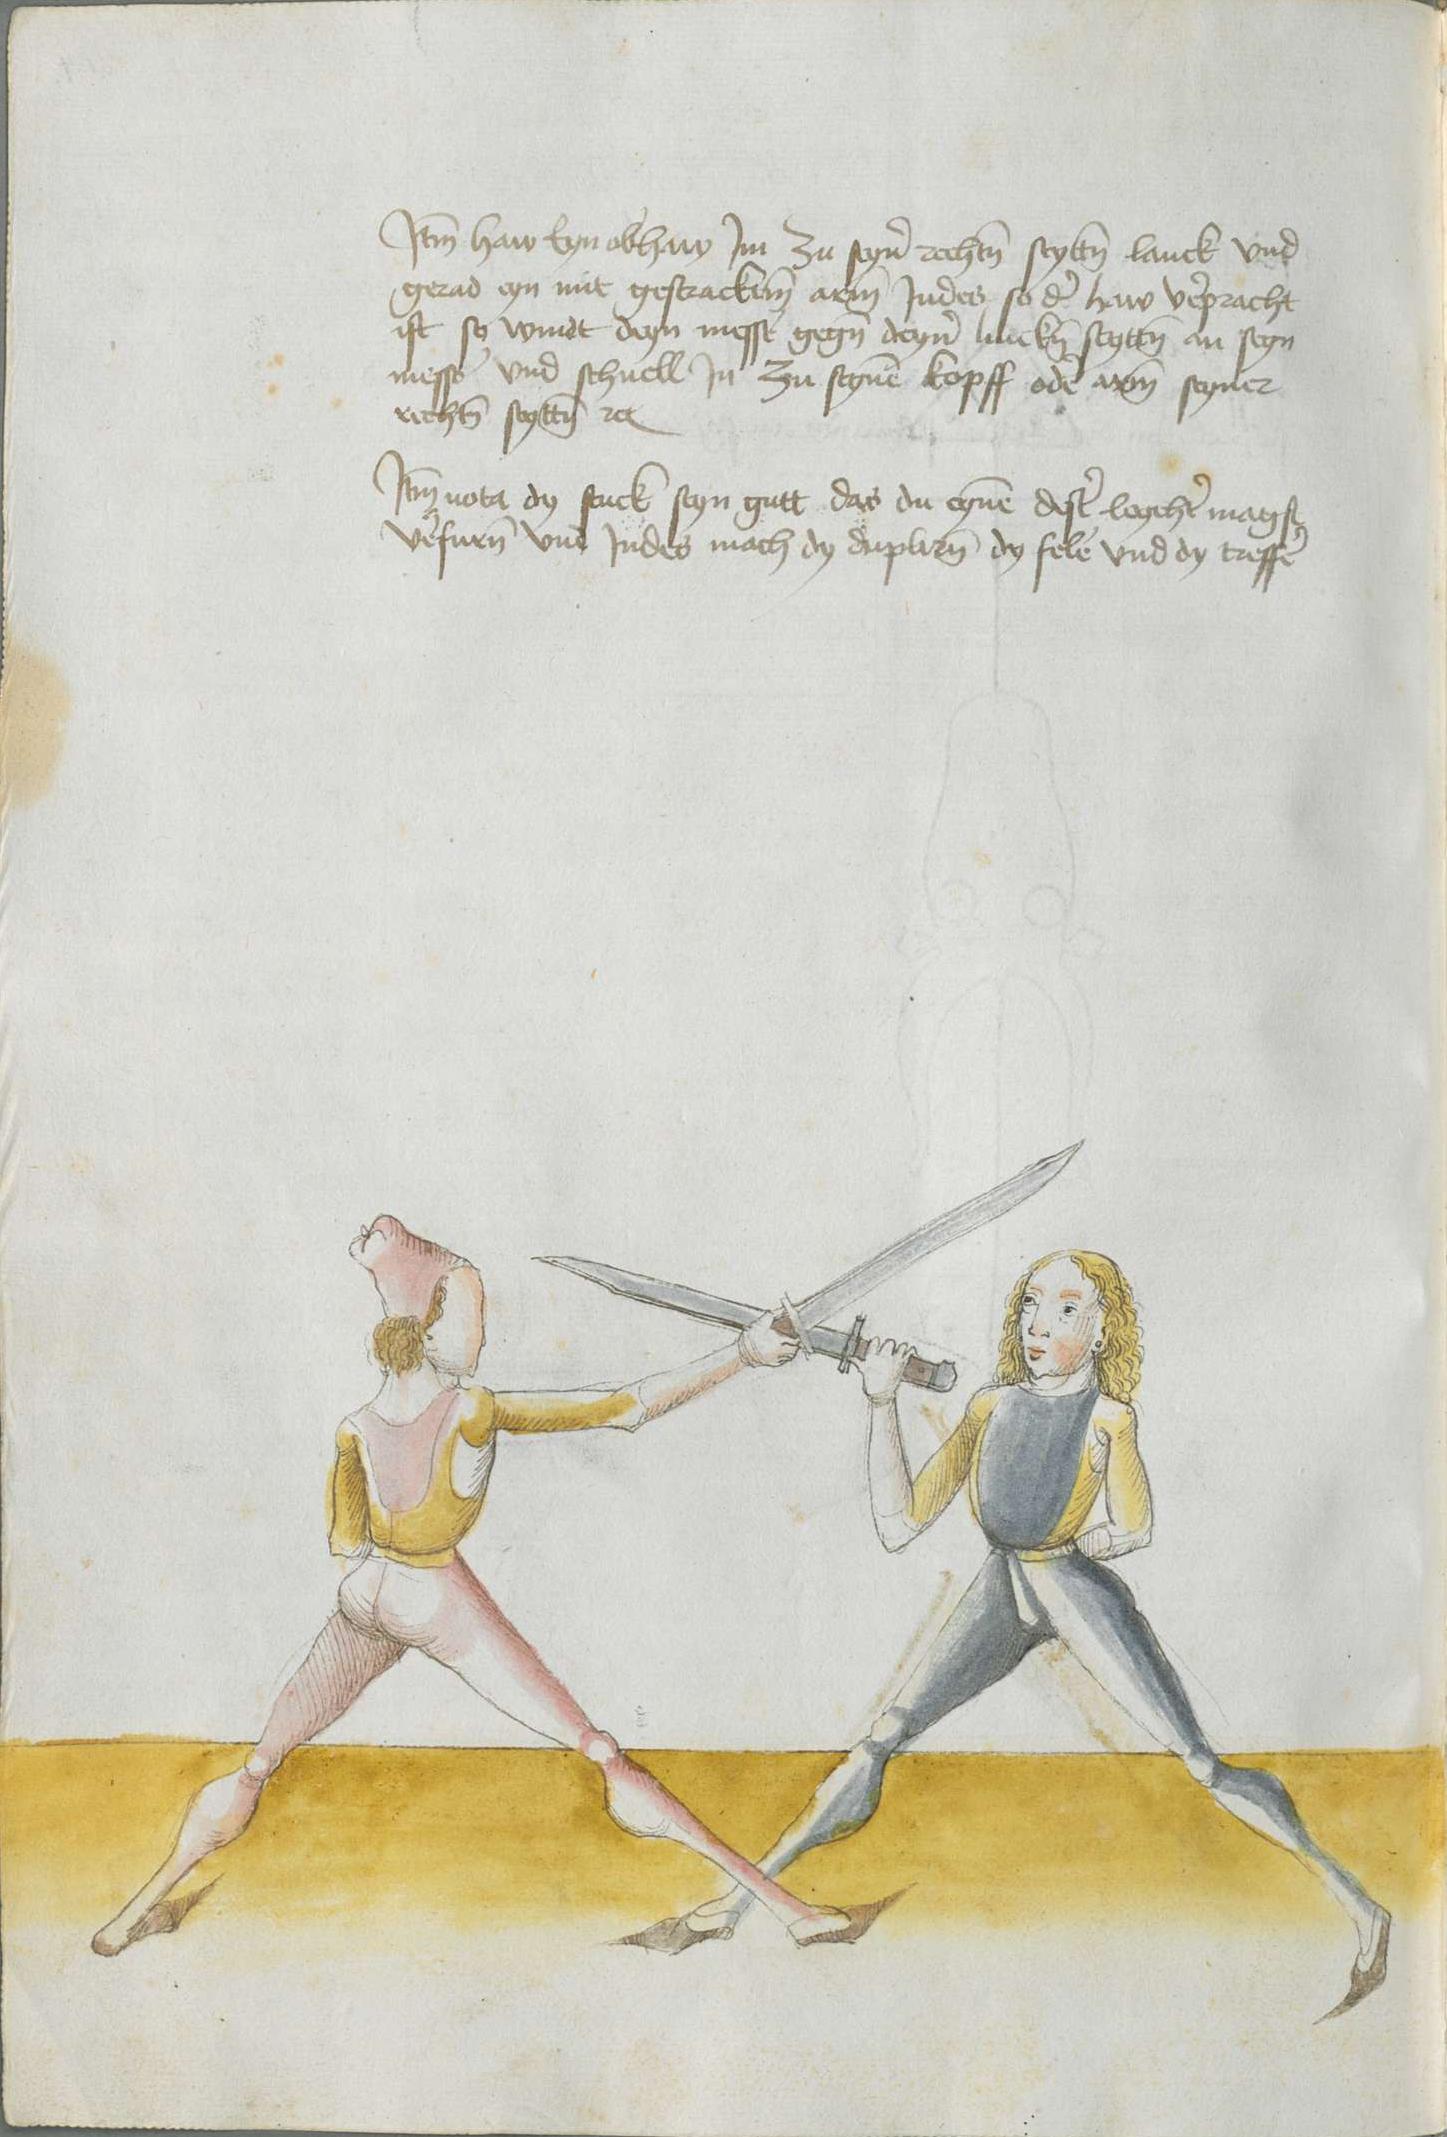 Itm̄ haw eyn obhaw Im Zu seyn̄ rechtn̄ seyttn̄ lanck vnd
gerad eyn mit gestracktem̄ arm̄ Indes so d' haw v'pracht
ist so windt deyn messe' gegn̄ deyn' linckn̄ seyttn̄ an seyn
messe' vnd schnell In Zu seynē kopff ode' arm̄ seyner
rechtn̄ seyttn̄ rc
Itm̄ nota dy stuck seyn gutt das du eynē dest' leycht' magst
v'furn̄ vnd Indes mach dy duplirn̄ dy fele' vnd dy treffe'